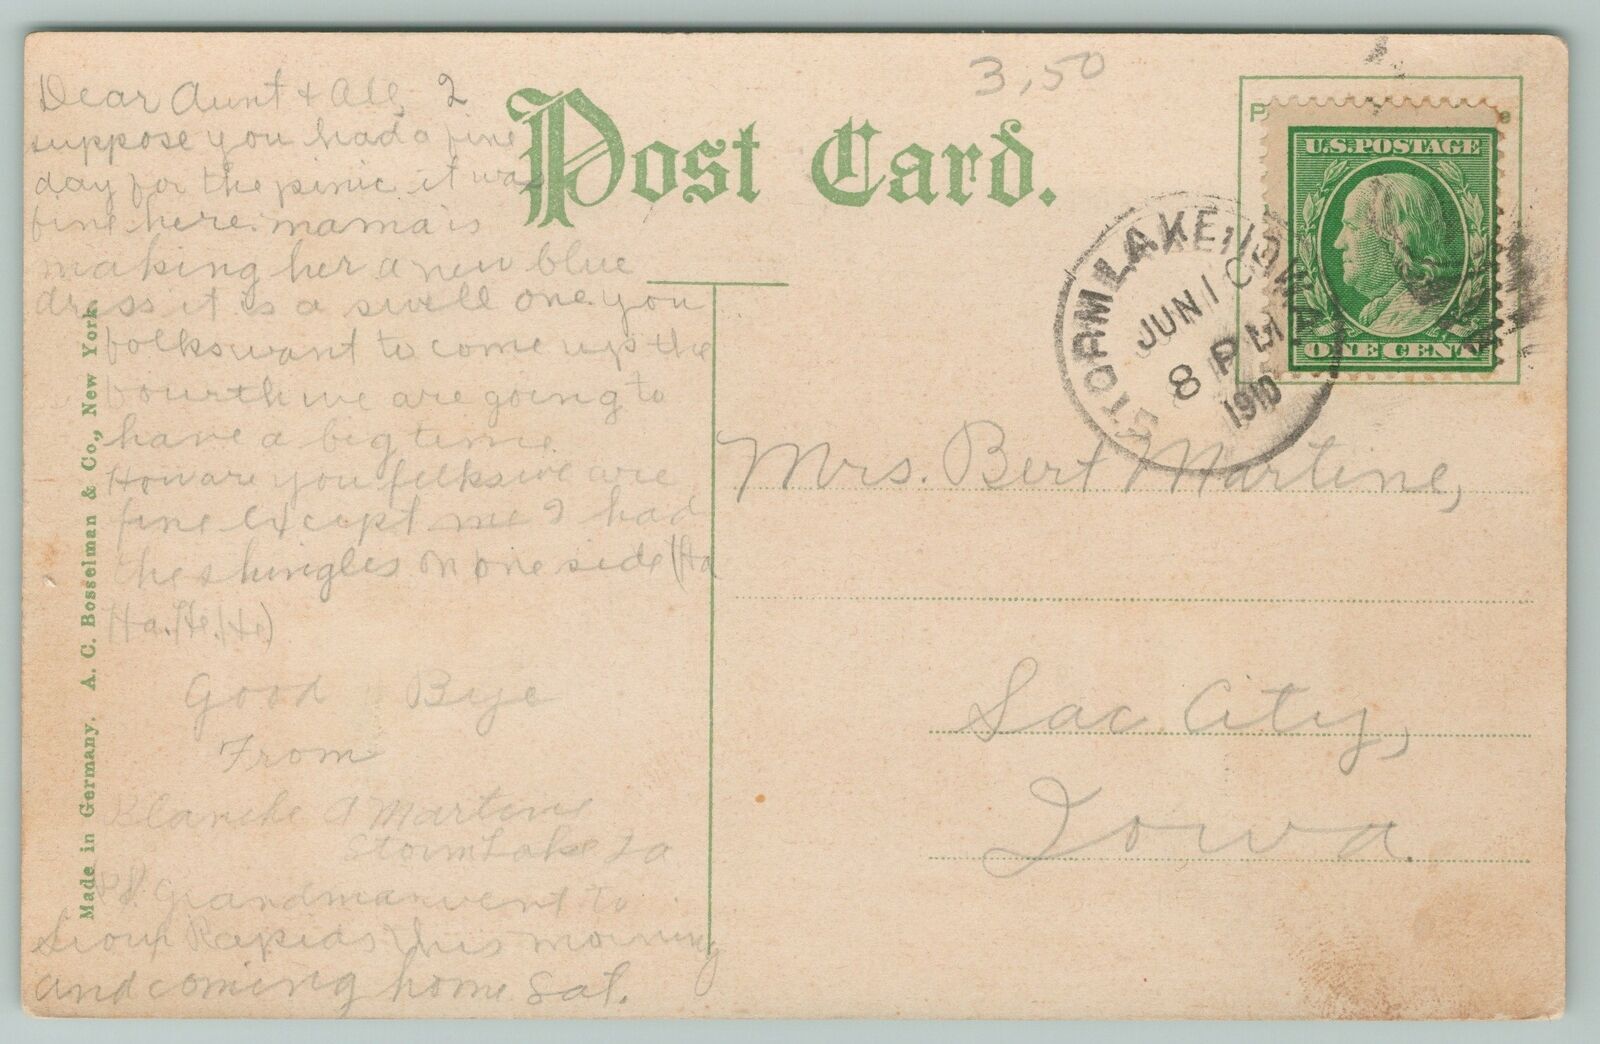 Dear Aunt & All, I
suppose you had a fine
day for the picnic it was
fine here. mama is
making her a new blue
dress it is a swell one. you
folks want to come up the
fourth we are going to
have a big time
How are you folks we are
fine except me I had
the shingles on one side (Ha
Ha. He. He)
Good Bye
From
Blanche A Martine
Storm Lake Ia
P.S. Grandma went to
Sioux Rapids this morning
and coming home Sat.
Made in Germany. A. C. Bosselman & Co., New York.
3,50
Post Card.
P e
U.S. POSTAGE
ONE CENT
STORM LAKE, IOWA
JUN 1
8 PM
1910
Mrs. Bert Martine,
Sac City,
Iowa.